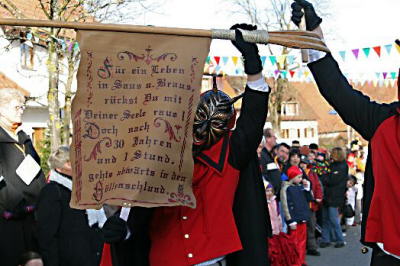 Für ein Leben
in Saus u. Braus,
rückst Du mit
Deiner Seele raus!
Doch nach
30 Jahren
und 1 Stund,
gehts abwärts in den
Höllenschlund.